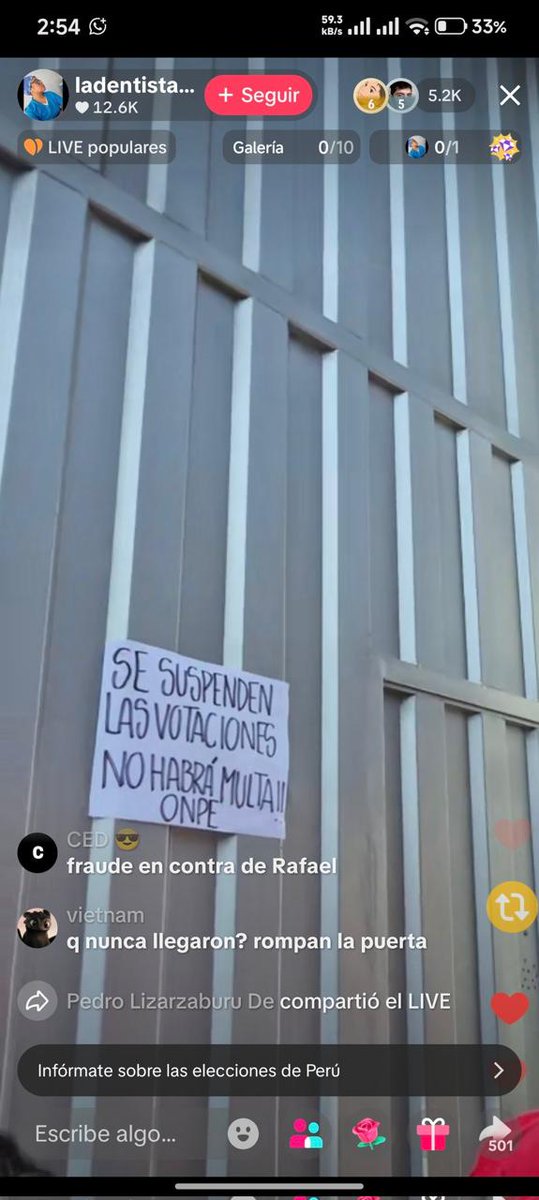 2:54
59.3
kB/s
33%
ladentista...
+ Seguir
6
5
5.2K
12.6K
LIVE populares
Galería 0/10
0/1
SE SUSPENDEN
LAS VOTACIONES
NO HABRÁ MULTA!!
ONPE
C
CED 😎
fraude en contra de Rafael
vietnam
q nunca llegaron? rompan la puerta
Pedro Lizarzaburu De compartió el LIVE
Infórmate sobre las elecciones de Perú
Escribe algo...
501